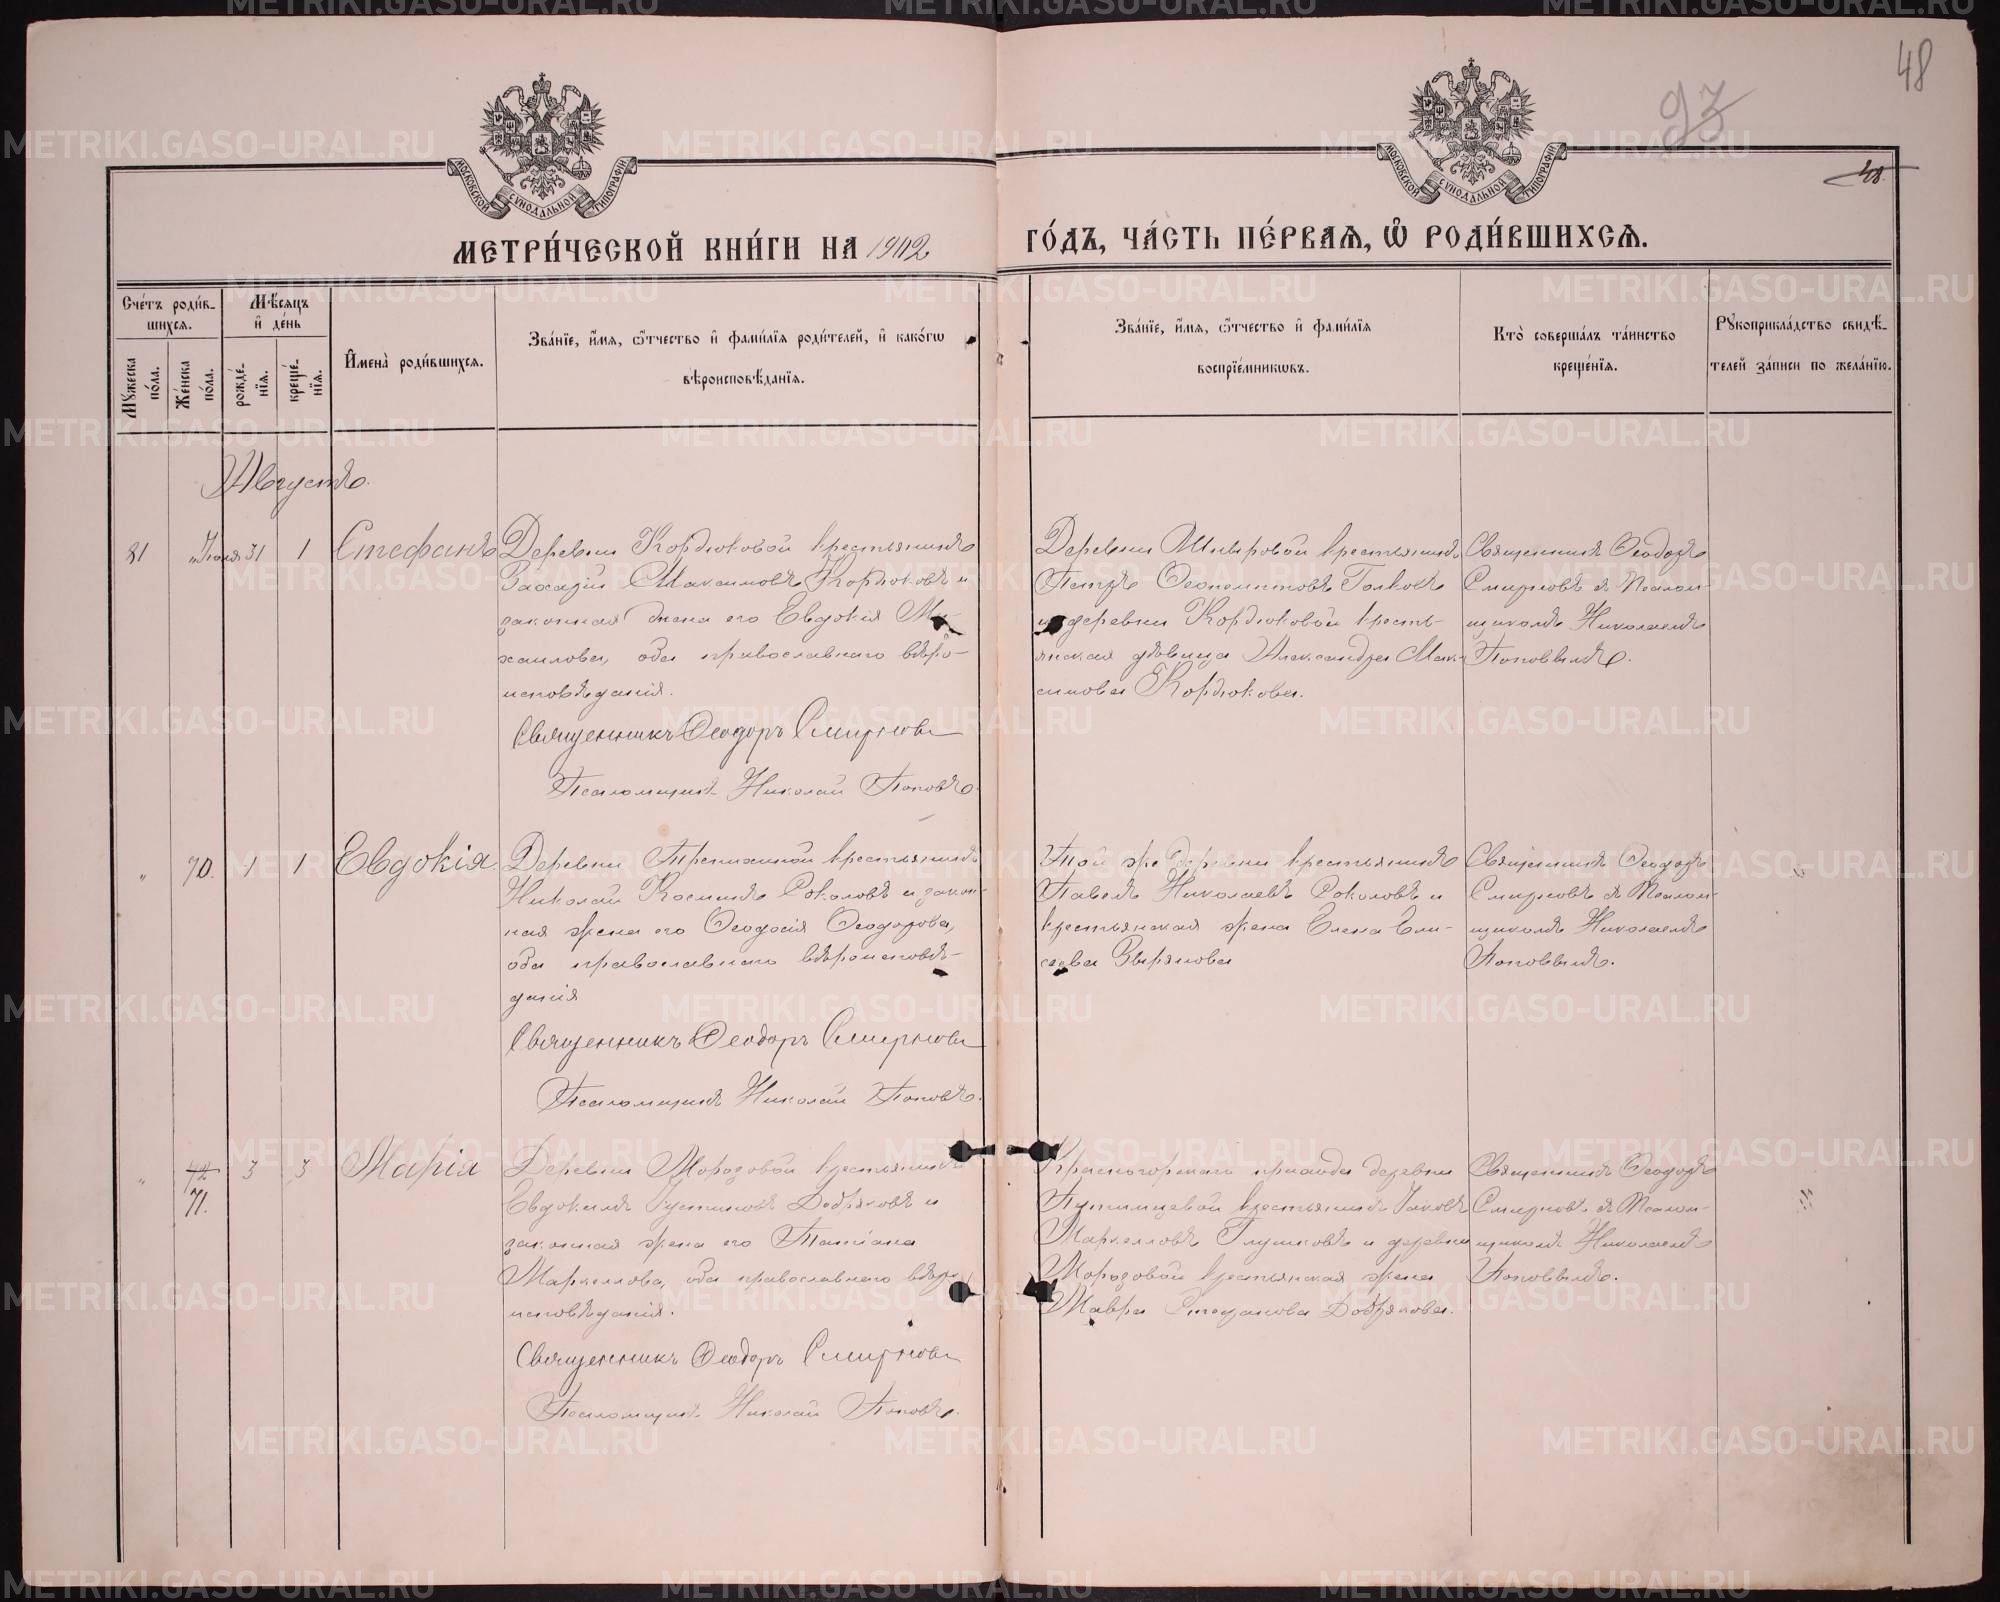 48
93
48.
МОСКОВСКОЙ СѴНОДАЛЬНОЙ ТИПОГРАФІИ
МОСКОВСКОЙ СѴНОДАЛЬНОЙ ТИПОГРАФІИ
МЕТРИ́ЧЕСКОЙ КНИ́ГИ НА 1902 ГО́ДЪ, ЧА́СТЬ ПЕ́РВАѦ, Ѽ РОДИ́ВШИХСѦ.
Сче́тъ роди́в-
шихсѧ.
Мѣ́сѧцъ
и҆ де́нь
Мꙋ́жеска
по́ла.
Же́нска
по́ла.
рожде́-
нїѧ.
креще́-
нїѧ.
И҆мена̀ роди́вшихсѧ.
Зва́нїе, и҆́мѧ, ѻ҆́тчество и҆ фами́лїѧ роди́телей, и҆ како́гѡ
вѣроисповѣ́данїѧ.
Зва́нїе, и҆́мѧ, ѻ҆́тчество и҆ фами́лїѧ
воспрїе́мникѡвъ.
Кто̀ соверша́лъ та́инство
креще́нїѧ.
Рꙋкоприкла́дство свидѣ́-
телей за́писи по жела́нїю.
Августъ.
81 „ Іюля 31 1 Стефанъ
Деревни Кордюковой крестьянинъ
Захарій Максимовъ Кордюковъ и
законная жена его Евдокія Ми-
хаилова, оба православнаго вѣро-
исповѣданія.
Священникъ Ѳеодоръ Смирновъ
Псаломщикъ Николай Поповъ.
Деревни крестьянинъ
Петръ и деревни Кордюковой кресть-
янская дѣвица Александра Мак-
симова Кордюкова.
Священникъ Ѳеодоръ
Смирновъ съ псалом-
щикомъ Николаемъ
Поповымъ.
„ 70. 1 1 Евдокія
Деревни крестьянинъ
Николай Косминъ Соколовъ и закон-
ная жена его Ѳеодосія Ѳеодорова,
оба православнаго вѣроисповѣ-
данія
Священникъ Ѳеодоръ Смирновъ
Псаломщикъ Николай Поповъ.
Той же деревни крестьянинъ
Павелъ Николаевъ Соколовъ и
крестьянская жена Елена Ели-
сеева Зырянова
Священникъ Ѳеодоръ
Смирновъ съ псалом-
щикомъ Николаемъ
Поповымъ.
„ 71. 3 3 Марія
Деревни Морозовой крестьянинъ
Евдокимъ Іустиновъ Добряковъ и
законная жена его Татіана
Маркеллова, оба православнаго вѣро-
исповѣданія.
Священникъ Ѳеодоръ Смирновъ
Псаломщикъ Николай Поповъ.
Красногорскаго прихода деревни
крестьянинъ Іаковъ
Маркелловъ Глушковъ и деревни
Морозовой крестьянская жена
Мавра Стефанова Добрякова.
Священникъ Ѳеодоръ
Смирновъ съ псалом-
щикомъ Николаемъ
Поповымъ.
METRIKI.GASO-URAL.RU